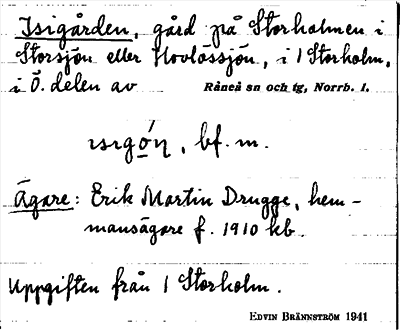 Isigården, gård på Storholmen i
Storsjön eller Hovlössjön, i 1 Storholm,
i Ö. delen av Råneå sn och tg, Norrb. l.
ısıgǫ́n, bf. m.
Ägare: Erik Martin Drugge, hem-
mansägare f. 1910 kb.
Uppgiften från 1 Storholm.
EDVIN BRÄNNSTRÖM 1941